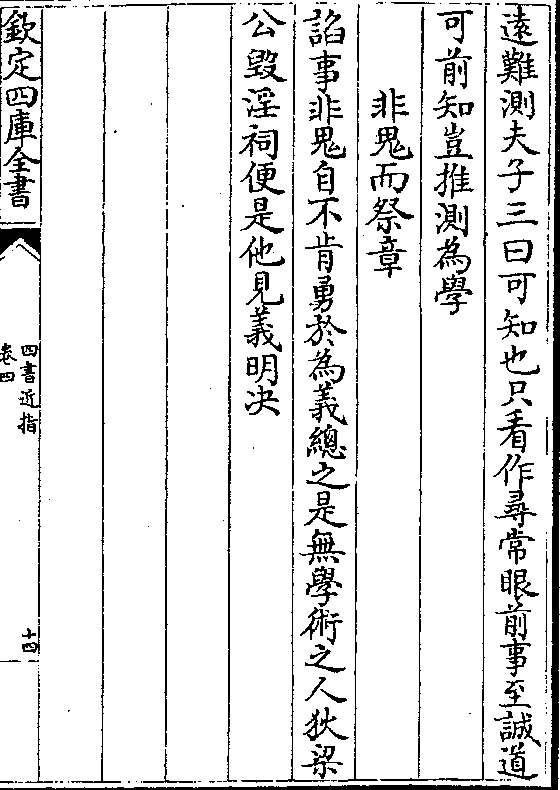 遠難測夫子三曰可知也只看作尋常眼前事至誠道
可前知豈推測為學
非鬼而祭章
諂事非鬼自不肯勇於為義總之是無學術之人狄梁
公毀淫祠便是他見義明决
欽定四庫全書
四書近指
卷四
十四